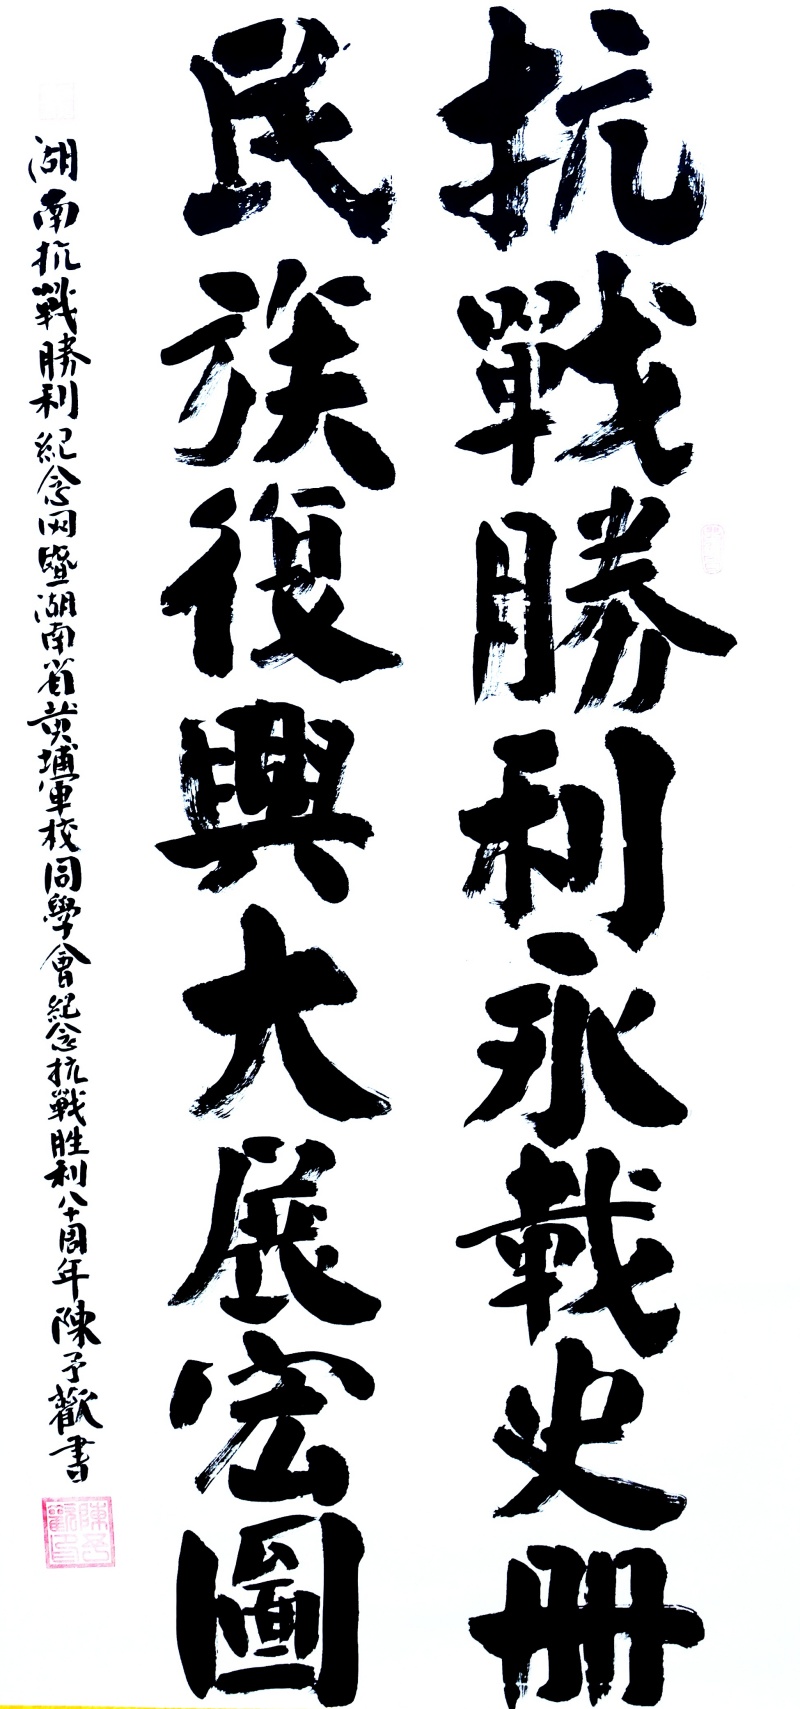 抗戰勝利永載史册
民族復興大展宏圖
湖南抗戰勝利紀念网暨湖南省黄埔軍校同學會紀念抗戰胜利八十周年陳予歡書